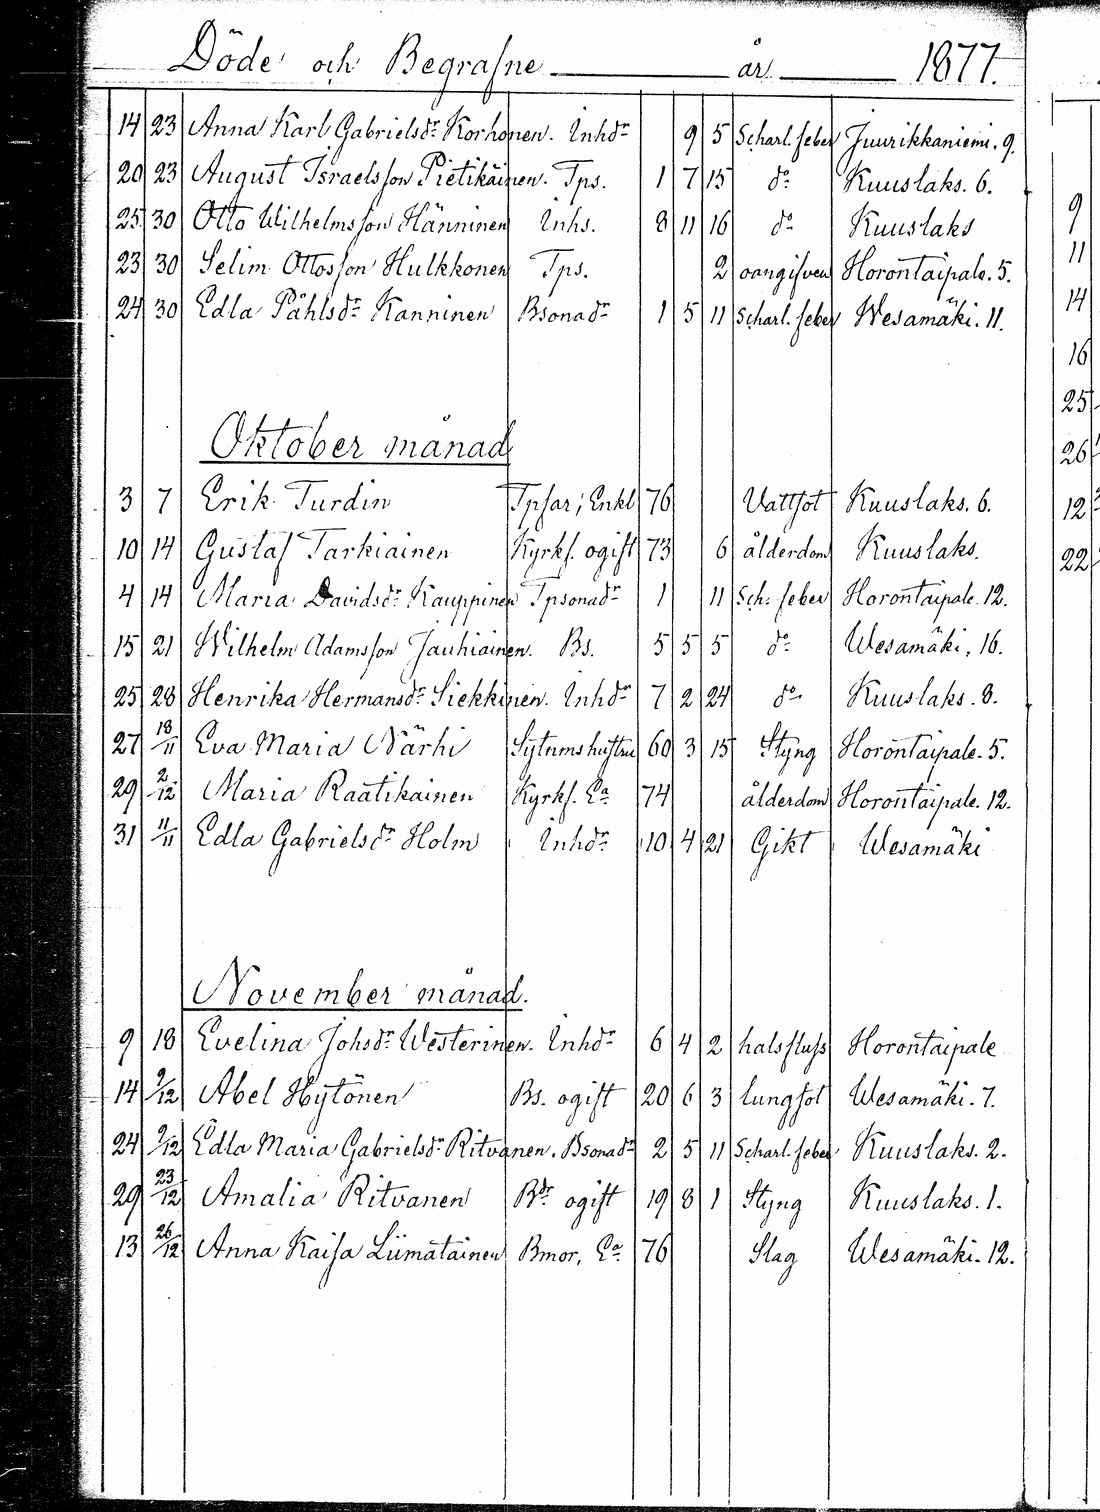 Döde och Begrafne år 1877.
14 23 Anna Karl Gabrielsdr Korhonen. Inhdr 9 5 Scharl. feber Juurikkaniemi. 9.
20 23 August Israelsson Pietikäinen. Tps. 1 7 15 do Kuuslaks. 6.
25 30 Otto Wilhelmsson Hänninen Inhs. 8 11 16 do Kuuslaks
23 30 Selim Ottosson Hulkkonen Tps. 2 oangifven Horontaipale. 5.
24 30 Edla Påhlsdr Kanninen Bsonadr 1 5 11 Scharl. feber Wesamäki. 11.
Oktober månad
3 7 Erik Turdin Tpfar; Enkl 76 Vattsot Kuuslaks. 6.
10 14 Gustaf Tarkiainen Kyrkf. ogift 73 6 ålderdom Kuuslaks.
4 14 Maria Davidsdr Kauppinen Tpsonadr 1 11 Sch. feber Horontaipale. 12.
15 21 Wilhelm Adamsson Jauhiainen. Bs. 5 5 5 do Wesamäki. 16.
25 28 Henrika Hermansdr Siekkinen. Inhdr 7 2 24 do Kuuslaks. 8.
27 18/11 Eva Maria Närhi Sytnmshustru 60 3 15 Styng Horontaipale. 5.
29 2/12 Maria Raatikainen Kyrkf. Ea 74 ålderdom Horontaipale. 12.
31 11/11 Edla Gabrielsdr Holm Inhdr 10 4 21 Gikt Wesamäki
November månad.
9 18 Evelina Johsdr Westerinen. Inhdr 6 4 2 halsfluss Horontaipale
14 9/12 Abel Hytönen Bs. ogift 20 6 3 lungsot Wesamäki. 7.
24 9/12 Edla Maria Gabrielsdr Ritvanen. Bsonadr 2 5 11 Scharl. feber Kuuslaks. 2.
29 23/12 Amalia Ritvanen Bdr ogift 19 8 1 Styng Kuuslaks. 1.
13 26/12 Anna Kaisa Liimatainen Bmor, Ea 76 Slag Wesamäki. 12.
9
11
14
16
25
26
12
22